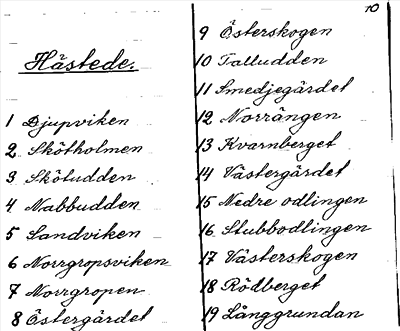 10
Hästede.
1 Djupviken
2 Skötholmen
3 Skötudden
4 Nabbudden
5 Sandviken
6 Norrgropsviken
7 Norrgropen
8 Östergärdet
9 Österskogen
10 Talludden
11 Smedjegärdet
12 Norrängen
13 Kvarnberget
14 Västergärdet
15 Nedre odlingen
16 Stubbodlingen
17 Västerskogen
18 Rödberget
19 Långgrundan